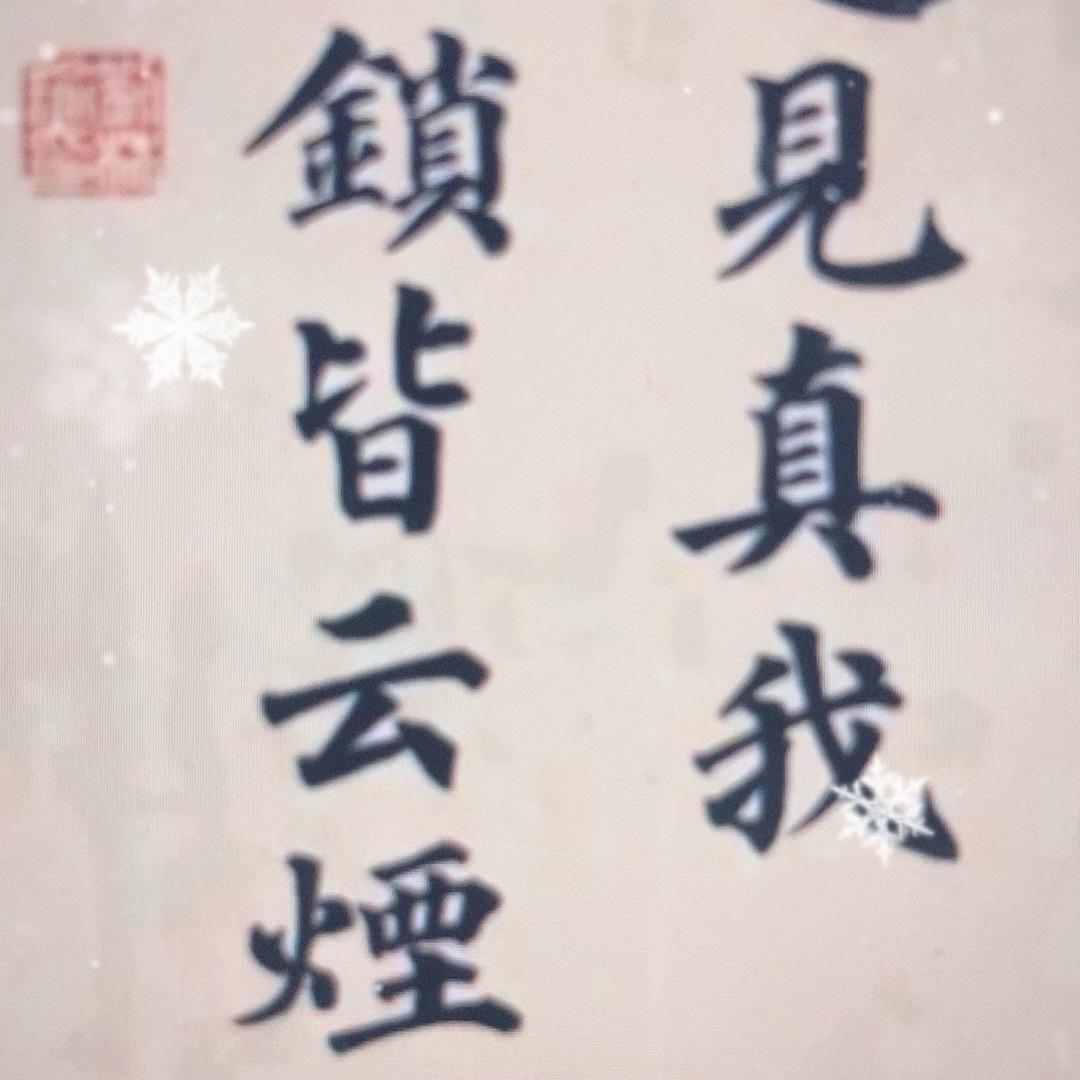 見真我
鎖皆云煙